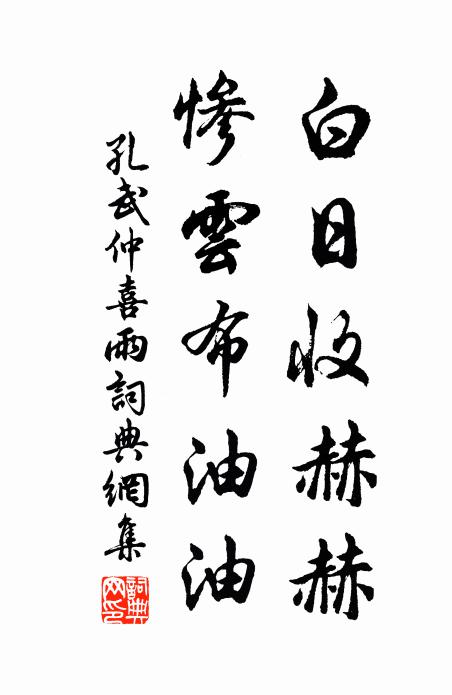 白日收赫赫
慘雲布油油
孔武仲喜雨詞典網集
詞典網印